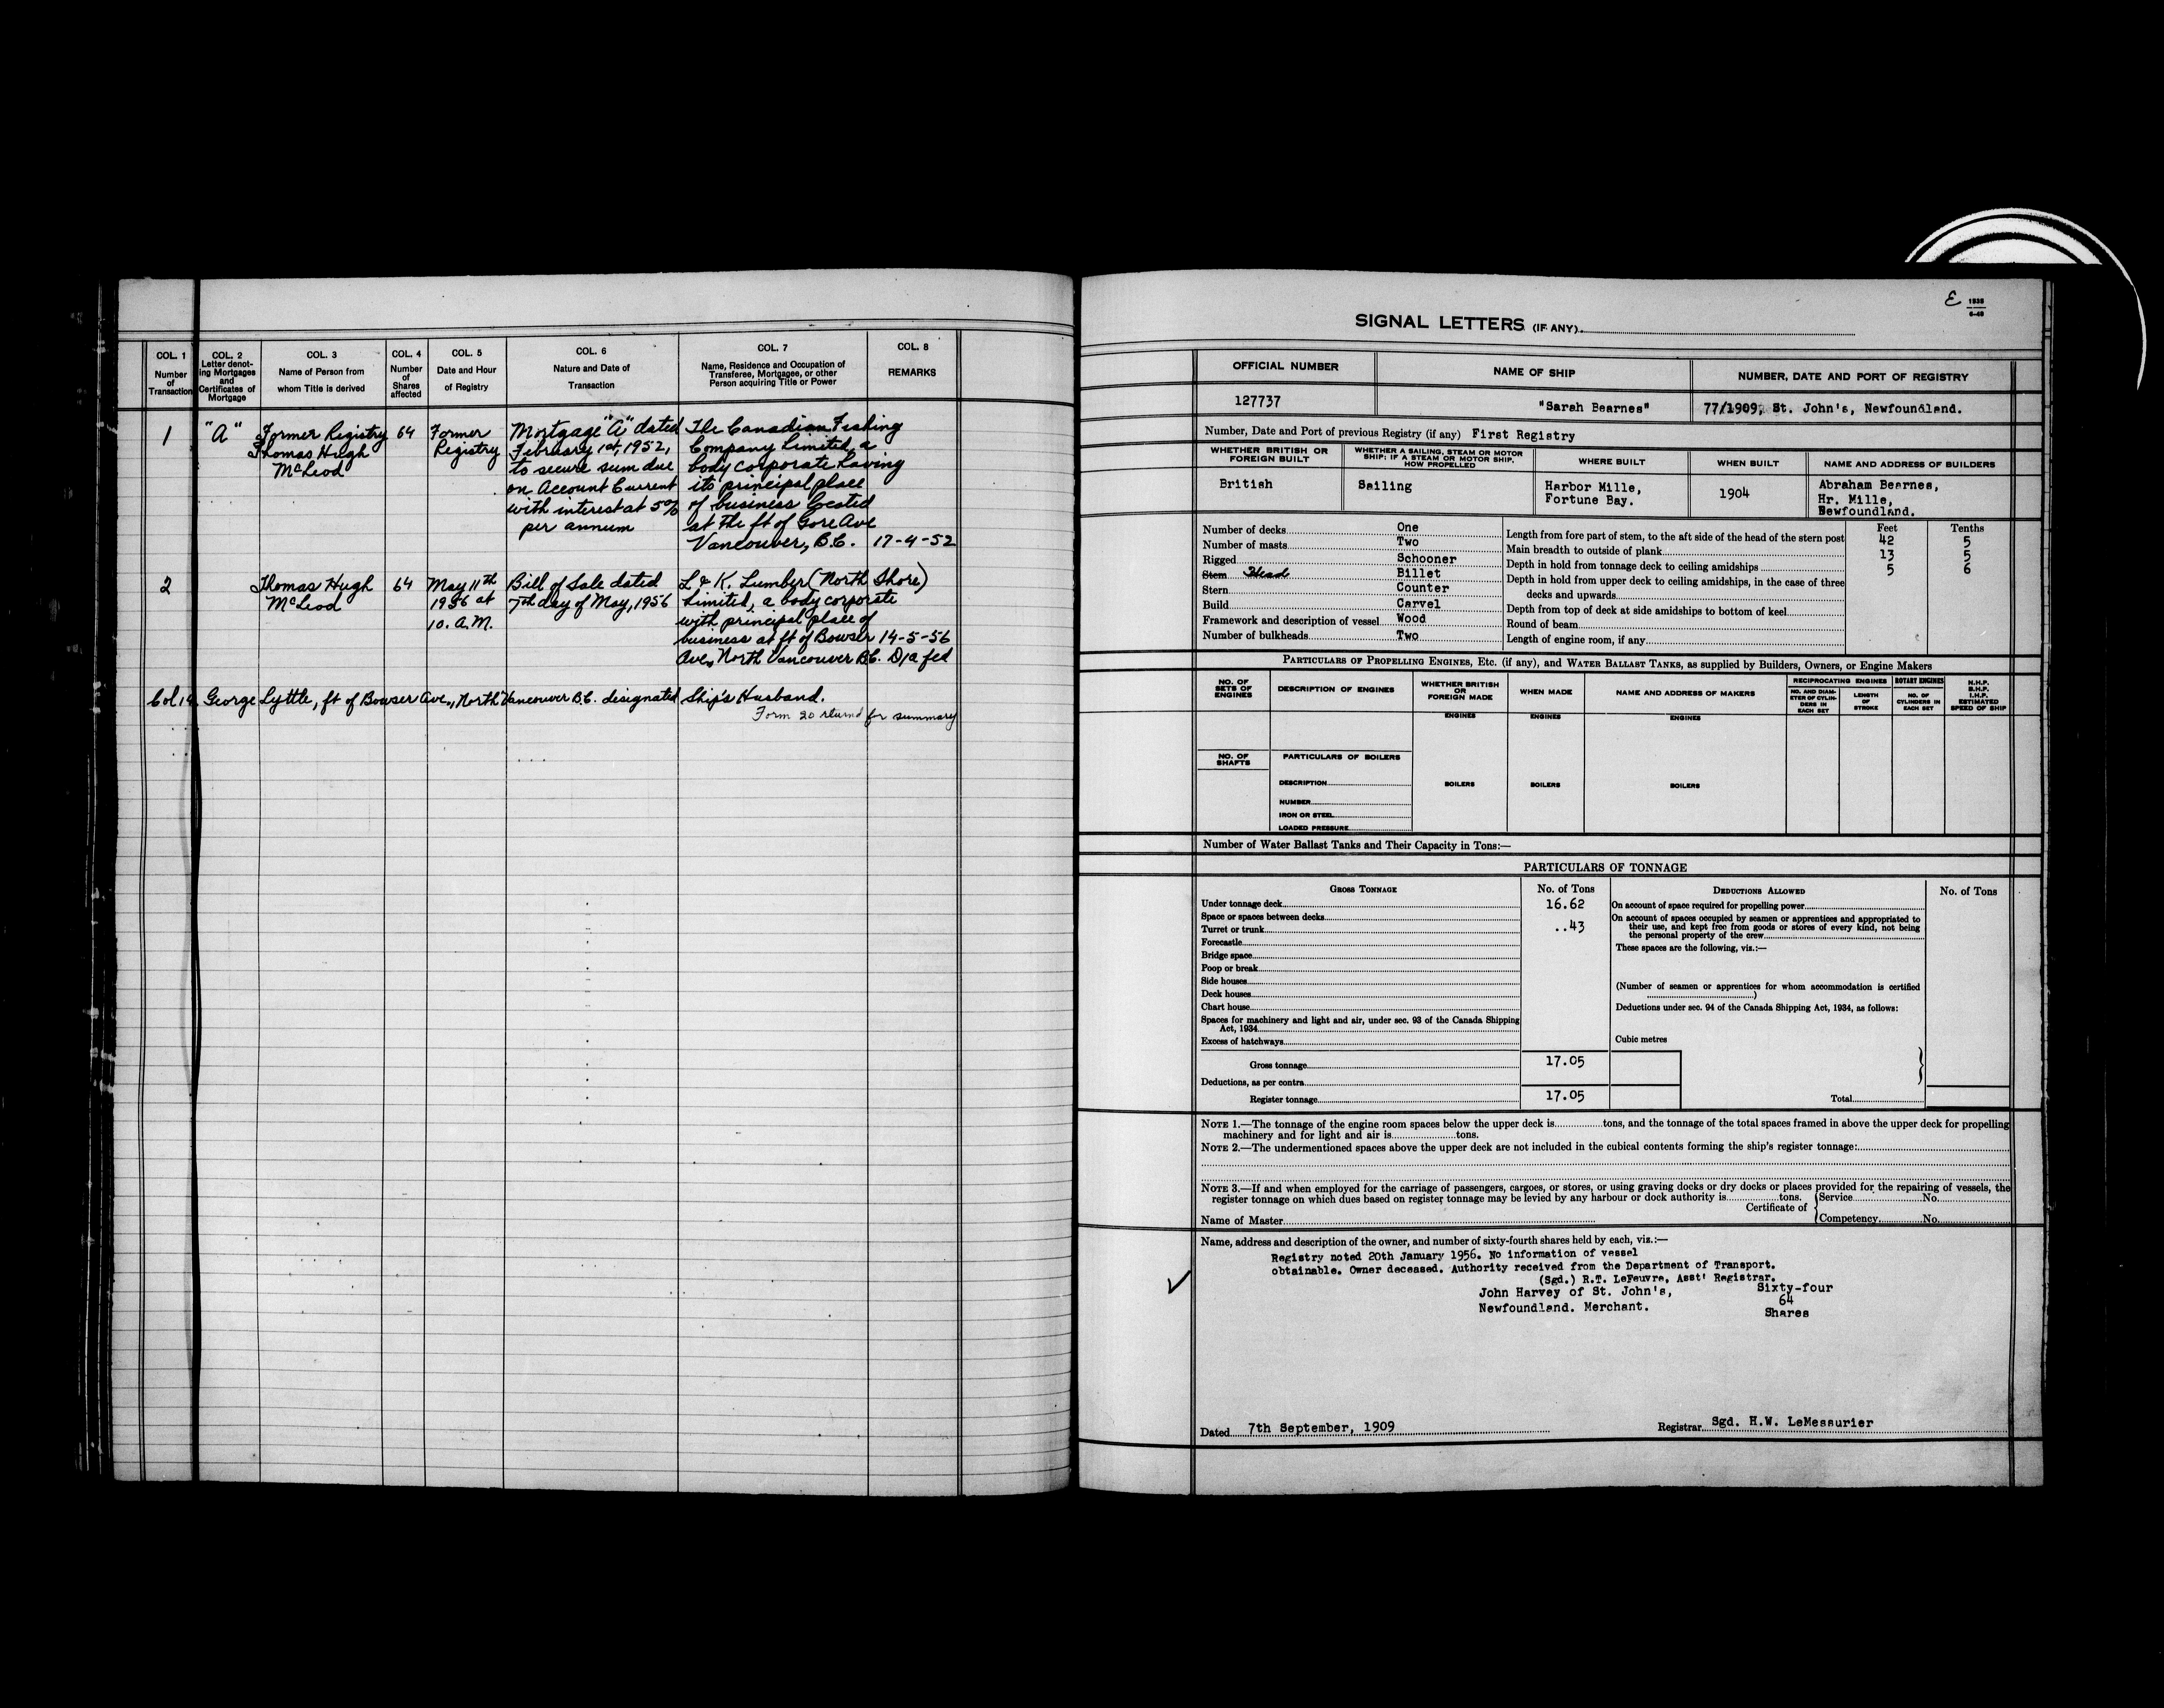 COL. 1
Number
of
Transaction
COL. 2
Letter denot-
ing Mortgages
and
Certificates of
Mortgage
COL. 3
Name of Person from
whom Title is derived
COL. 4
Number
of
Shares
affected
COL. 5
Date and Hour
of Registry
COL. 6
Nature and Date of
Transaction
COL. 7
Name, Residence and Occupation of
Transferee, Mortgagee, or other
Person acquiring Title or Power
COL. 8
REMARKS
1
"A"
Former Registry
Thomas Hugh
McLeod
64
Former
Registry
Mortgage "A" dated
February 1st, 1952,
to secure sum due
on Account Current
with interest at 5%
per annum
The Canadian Fishing
Company Limited, a
body corporate having
its principal place
of business located
at the ft of Gore Ave
Vancouver, B.C.
17-4-52
2
Thomas Hugh
McLeod
64
May 11th
1956 at
10. A.M.
Bill of Sale dated
7th day of May, 1956
L & K. Lumber (North Shore)
Limited, a body corporate
with principal place of
business at ft of Bowser
Ave, North Vancouver B.C.
14-5-56
D/a fed
Col 14. George Lyttle, ft of Bowser Ave., North Vancouver B.C. designated Ship's Husband.
Form 20 returnd for summary
E
1935
6-49
SIGNAL LETTERS (IF ANY)
OFFICIAL NUMBER
NAME OF SHIP
NUMBER, DATE AND PORT OF REGISTRY
127737
"Sarah Bearnes"
77/1909, St. John's, Newfoundland.
Number, Date and Port of previous Registry (if any) First Registry
WHETHER BRITISH OR
FOREIGN BUILT
WHETHER A SAILING, STEAM OR MOTOR
SHIP; IF A STEAM OR MOTOR SHIP,
HOW PROPELLED
WHERE BUILT
WHEN BUILT
NAME AND ADDRESS OF BUILDERS
British
Sailing
Harbor Mille,
Fortune Bay.
1904
Abraham Bearnes,
Hr. Mille,
Newfoundland.
Number of decks One
Number of masts Two
Rigged Schooner
Stem Head Billet
Stern Counter
Build Carvel
Framework and description of vessel Wood
Number of bulkheads Two
Feet Tenths
Length from fore part of stem, to the aft side of the head of the stern post 42 5
Main breadth to outside of plank 13 5
Depth in hold from tonnage deck to ceiling amidships 5 6
Depth in hold from upper deck to ceiling amidships, in the case of three
decks and upwards
Depth from top of deck at side amidships to bottom of keel
Round of beam
Length of engine room, if any
PARTICULARS OF PROPELLING ENGINES, ETC. (if any), AND WATER BALLAST TANKS, as supplied by Builders, Owners, or Engine Makers
NO. OF
SETS OF
ENGINES
DESCRIPTION OF ENGINES
WHETHER BRITISH
OR
FOREIGN MADE
WHEN MADE
NAME AND ADDRESS OF MAKERS
RECIPROCATING ENGINES
NO. AND DIAM-
ETER OF CYLIN-
DERS IN
EACH SET
LENGTH
OF
STROKE
ROTARY ENGINES
NO. OF
CYLINDERS IN
EACH SET
N.H.P.
B.H.P.
I.H.P.
ESTIMATED
SPEED OF SHIP
ENGINES
ENGINES
ENGINES
NO. OF
SHAFTS
PARTICULARS OF BOILERS
DESCRIPTION
NUMBER
IRON OR STEEL
LOADED PRESSURE
BOILERS
BOILERS
BOILERS
Number of Water Ballast Tanks and Their Capacity in Tons:—
PARTICULARS OF TONNAGE
GROSS TONNAGE
No. of Tons
Under tonnage deck 16.62
Space or spaces between decks
Turret or trunk ..43
Forecastle
Bridge space
Poop or break
Side houses
Deck houses
Chart house
Spaces for machinery and light and air, under sec. 93 of the Canada Shipping
Act, 1934
Excess of hatchways
Gross tonnage 17.05
Deductions, as per contra
Register tonnage 17.05
DEDUCTIONS ALLOWED
No. of Tons
On account of space required for propelling power
On account of spaces occupied by seamen or apprentices and appropriated to
their use, and kept free from goods or stores of every kind, not being
the personal property of the crew
These spaces are the following, viz.:—
(Number of seamen or apprentices for whom accommodation is certified
)
Deductions under sec. 94 of the Canada Shipping Act, 1934, as follows:
Cubic metres
Total
NOTE 1.—The tonnage of the engine room spaces below the upper deck is tons, and the tonnage of the total spaces framed in above the upper deck for propelling
machinery and for light and air is tons.
NOTE 2.—The undermentioned spaces above the upper deck are not included in the cubical contents forming the ship's register tonnage:
NOTE 3.—If and when employed for the carriage of passengers, cargoes, or stores, or using graving docks or dry docks or places provided for the repairing of vessels, the
register tonnage on which dues based on register tonnage may be levied by any harbour or dock authority is tons.
Certificate of
Service No.
Competency No.
Name of Master
Name, address and description of the owner, and number of sixty-fourth shares held by each, viz.:—
Registry noted 20th January 1956. No information of vessel
obtainable. Owner deceased. Authority received from the Department of Transport.
(Sgd.) R.T. LeFeuvre, Asst' Registrar.
John Harvey of St. John's,
Newfoundland. Merchant.
Sixty-four
64
Shares
Dated 7th September, 1909
Registrar Sgd. H.W. LeMessurier